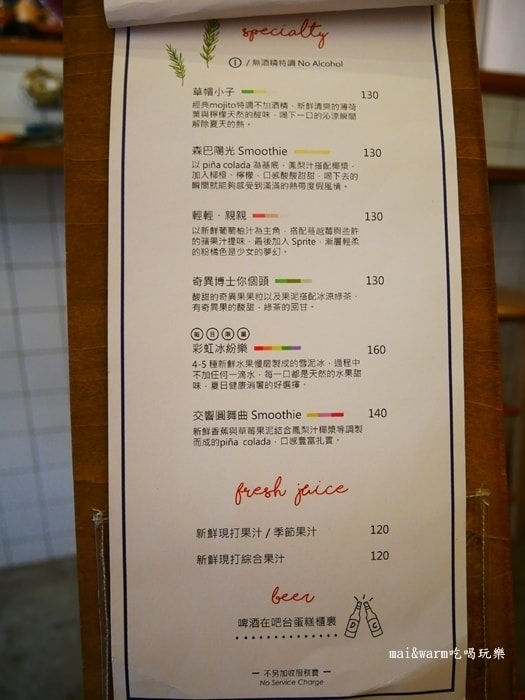 specialty
/ 無酒精特調 No Alcohol
草帽小子 130
經典mojito特調不加酒精，新鮮清爽的薄荷
葉與檸檬天然的酸味，喝下一口的沁涼瞬間
解除夏天的熱。
森巴陽光 Smoothie 130
以 piña colada 為基底，鳳梨汁搭配椰漿，
加入柳橙、檸檬，口感酸酸甜甜，喝下去的
瞬間就能夠感受到滿滿的熱帶度假風情。
輕輕・親親 130
以新鮮葡萄柚汁為主角，搭配蔓越莓與些許
的蘋果汁提味，最後加入 Sprite，漸層輕柔
的粉橘色是少女的夢幻。
奇異博士你個頭 130
酸甜的奇異果果粒以及果泥搭配冰涼綠茶，
有奇異果的酸甜，綠茶的回甘。
每日限量
彩虹冰紛樂 160
4-5 種新鮮水果慢磨製成的雪泥冰，過程中
不加任何一滴水，每一口都是天然的水果甜
味，夏日健康消暑的好選擇。
交響圓舞曲 Smoothie 140
新鮮香蕉與草莓果泥結合鳳梨汁椰漿等調製
而成的piña colada，口感豐富扎實。
fresh juice
新鮮現打果汁 / 季節果汁 120
新鮮現打綜合果汁 120
beer
啤酒在吧台蛋糕櫃裏
D C
— 不另加收服務費 —
No Service Charge
mai&warm吃喝玩樂